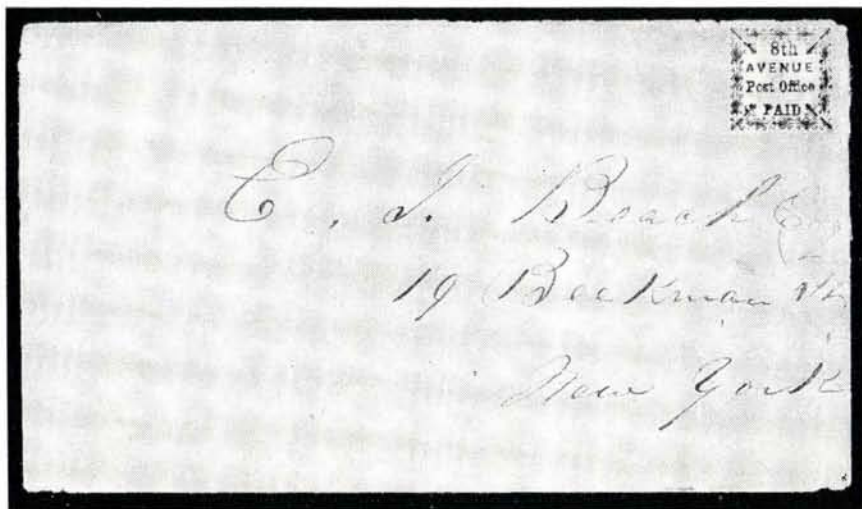 8th
AVENUE
Post Office
PAID
E. J. Beach Esq
19 Beekman St
New York